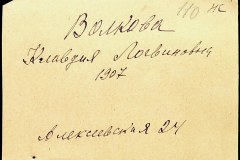 110 ж
Волкова
Клавдия Логвиновна
1907
Алексиевская 24